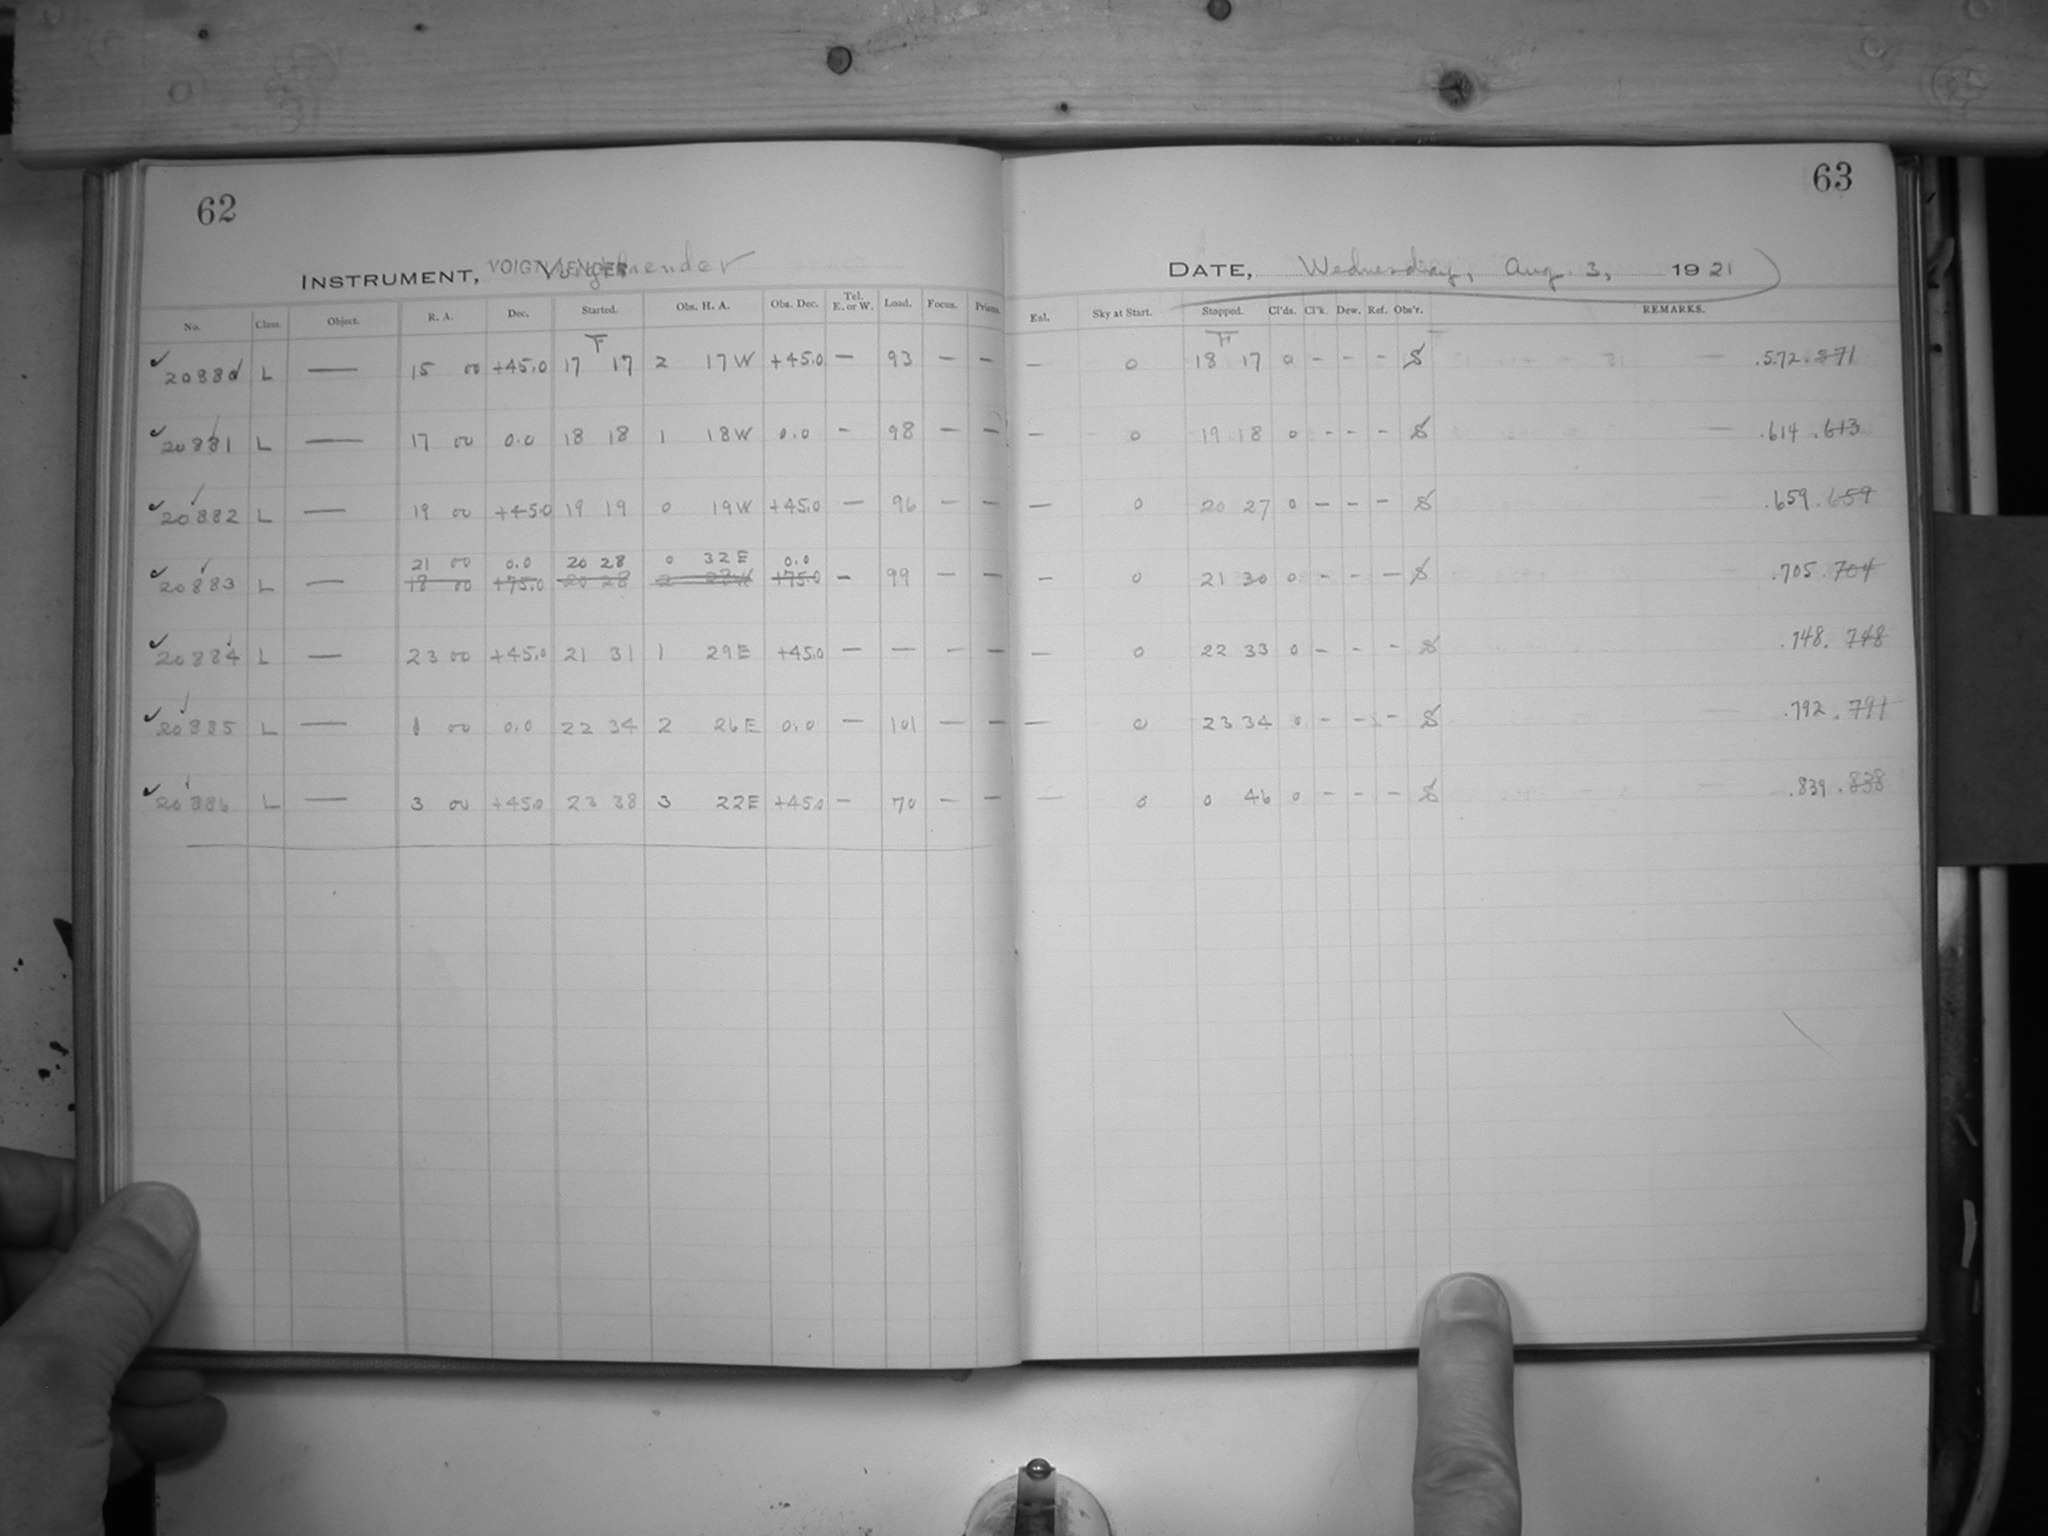 62
INSTRUMENT, VOIGTLAENDER Voigtlaender
No. Class. Object. R. A. Dec. Started. Obs. H. A. Obs. Dec. Tel. E. or W. Load. Focus. Prisms.
20880 L — 15 00 +45.0 17 17 2 17 W +45.0 — 93 — —
20881 L — 17 00 0.0 18 18 1 18 W 0.0 — 98 — —
20882 L — 19 00 +45.0 19 19 0 19 W +45.0 — 96 — —
21 00 0.0 20 28 0 32 E 0.0
20883 L — 18 00 +75.0 20 28 2 28 W +75.0 — 99 — —
20884 L — 23 00 +45.0 21 31 1 29 E +45.0 — — — —
20885 L — 1 00 0.0 22 34 2 26 E 0.0 — 101 — —
20886 L — 3 00 +45.0 23 38 3 22 E +45.0 — 70 — —
63
DATE, Wednesday, Aug. 3, 1921
Enl. Sky at Start. Stopped. Cl'ds. Cl'k. Dew. Ref. Obs'r. REMARKS.
— 0 18 17 0 - - - S .572 .571
— 0 19 18 0 - - - S .614 .613
— 0 20 27 0 - - - S .659 .659
— 0 21 30 0 - - - S .705 .704
— 0 22 33 0 - - - S .748 .748
— 0 23 34 0 - - - S .792 .791
— 0 0 46 0 - - - S .839 .838